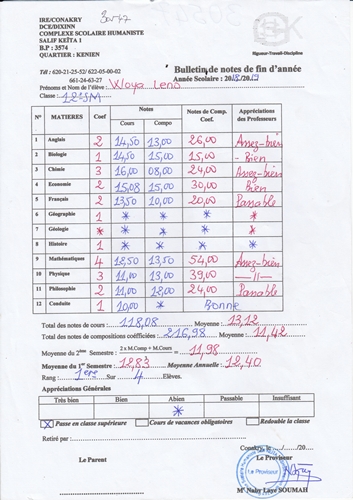 IRE/CONAKRY
DCE/DIXINN
COMPLEXE SCOLAIRE HUMANISTE
SALIF KEÏTA 1
B.P : 3574
QUARTIER : KENIEN
Rigueur-Travail-Discipline
Tél : 620-21-25-52/ 622-05-00-02
661-24-63-27
Bulletin de notes de fin d'année
Année Scolaire : 2018/2019
Prénoms et Nom de l'élève : Woya Leno
Classe : 12SM
N° MATIERES Coef Notes Notes de Comp. Coef. Appréciations des Professeurs
Cours Compo
1 Anglais 2 14,50 13,00 26,00 Assez-bien
2 Biologie 1 14,50 15,00 15,00 - Bien
3 Chimie 3 16,00 08,00 24,00 Assez-bien
4 Economie 2 15,08 15,00 30,00 bien
5 Français 2 13,50 10,00 20,00 Passable
6 Géographie 1 * * * *
7 Géologie * * * * *
8 Histoire 1 * * * *
9 Mathématiques 4 12,50 13,50 54,00 Assez-bien
10 Physique 3 11,00 13,00 39,00 —//—
11 Philosophie 2 11,00 12,00 24,00 Passable
12 Conduite 1 10,00 * Bonne
Total des notes de cours : 118,08 Moyenne : 13,12
Total des notes de compositions coéfficiées : 216,98 Moyenne : 11,42
Moyenne du 2ème Semestre : 2 x M.Comp + M.Cours = 11,98
3
Moyenne du 1er Semestre : 12,83 Moyenne Annuelle : 12,40
Rang : 1ère Sur 4 Elèves.
Appréciations Générales
Très bien Bien Abien Passable Insuffisant
*
X Passe en classe supérieure Cours de vacances obligatoires Redouble la classe
Retiré par :
Conakry, le ....../....../20....
Le Parent
Le Proviseur
Le Proviseur
Mr Naby Laye SOUMAH